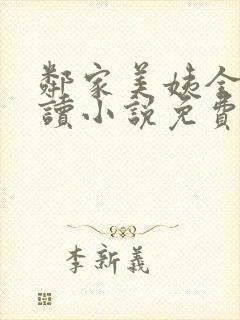 鄰家美姨全
讀小說免費
李新義